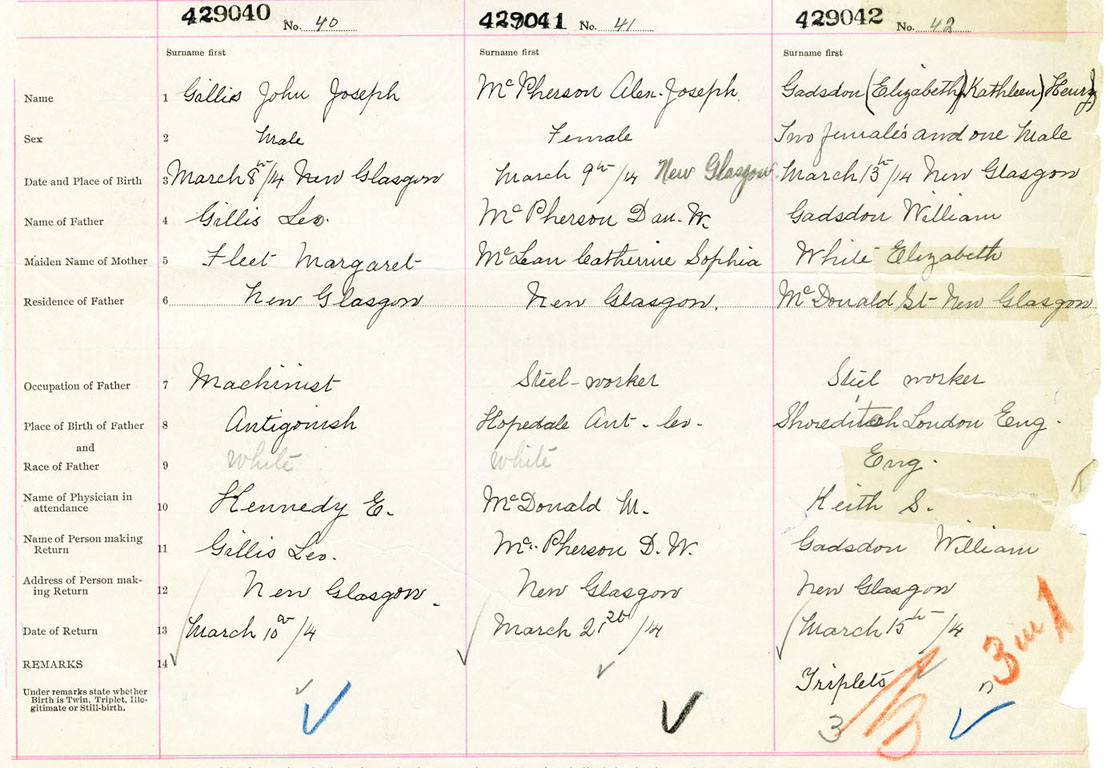 429040 No. 40 429041 No. 41 429042 No. 42
Surname first Surname first Surname first
Name 1 Gillis John Joseph McPherson Alex. Joseph. Gadsdon (Elizabeth)(Kathleen) Henry)
Sex 2 Male Female Two females and one Male
Date and Place of Birth 3 March 8th/14 New Glasgow March 9th/14 New Glasgow March 13th/14 New Glasgow
Name of Father 4 Gillis Leo. McPherson Dan. W. Gadsdon William
Maiden Name of Mother 5 Fleet Margaret McLean Catherine Sophia White Elizabeth
Residence of Father 6 New Glasgow New Glasgow. McDonald St New Glasgow
Occupation of Father 7 Machinist Steel-worker Steel worker
Place of Birth of Father 8 Antigonish Hopedale Ant. Co. Shoreditch London Eng.
and
Race of Father 9 White White Eng.
Name of Physician in
attendance 10 Kennedy E. McDonald M. Keith S.
Name of Person making
Return 11 Gillis Leo. Mc.Pherson D. W. Gadsdon William
Address of Person mak-
ing Return 12 New Glasgow. New Glasgow New Glasgow
Date of Return 13 March 10th/14 March 21st/14 March 15th/14
REMARKS 14 Triplets
Under remarks state whether
Birth is Twin, Triplet, Ille-
gitimate or Still-birth.
3
3 in 1